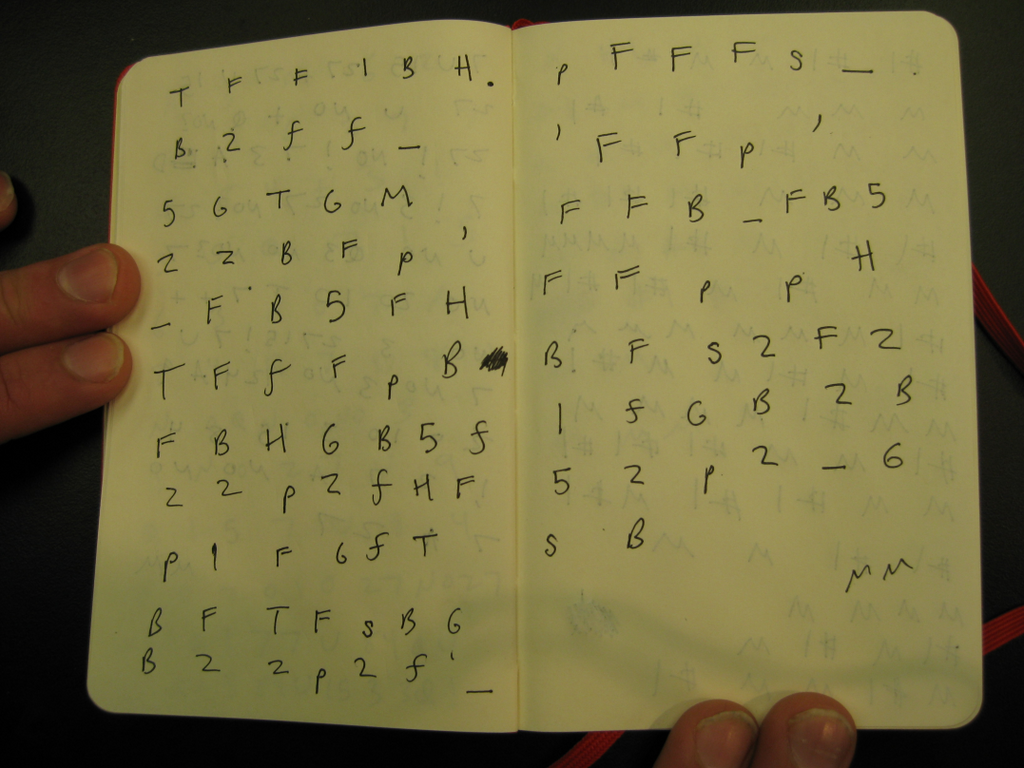 T F F 1 B H.
B 2 f f _
5 G T G M
2 2 B F p ,
_ F B 5 F H
T F f F p B
F B H G B 5 f
2 2 p 2 f H F
p 1 F 6 f T
B F T F s B G
B 2 2 p 2 f ' _
p F F F s _ .
, F F p ,
F F B _ F B 5
F F p p H
B F s 2 F 2
1 f G B 2 B
5 2 p 2 _ 6
s B
M M